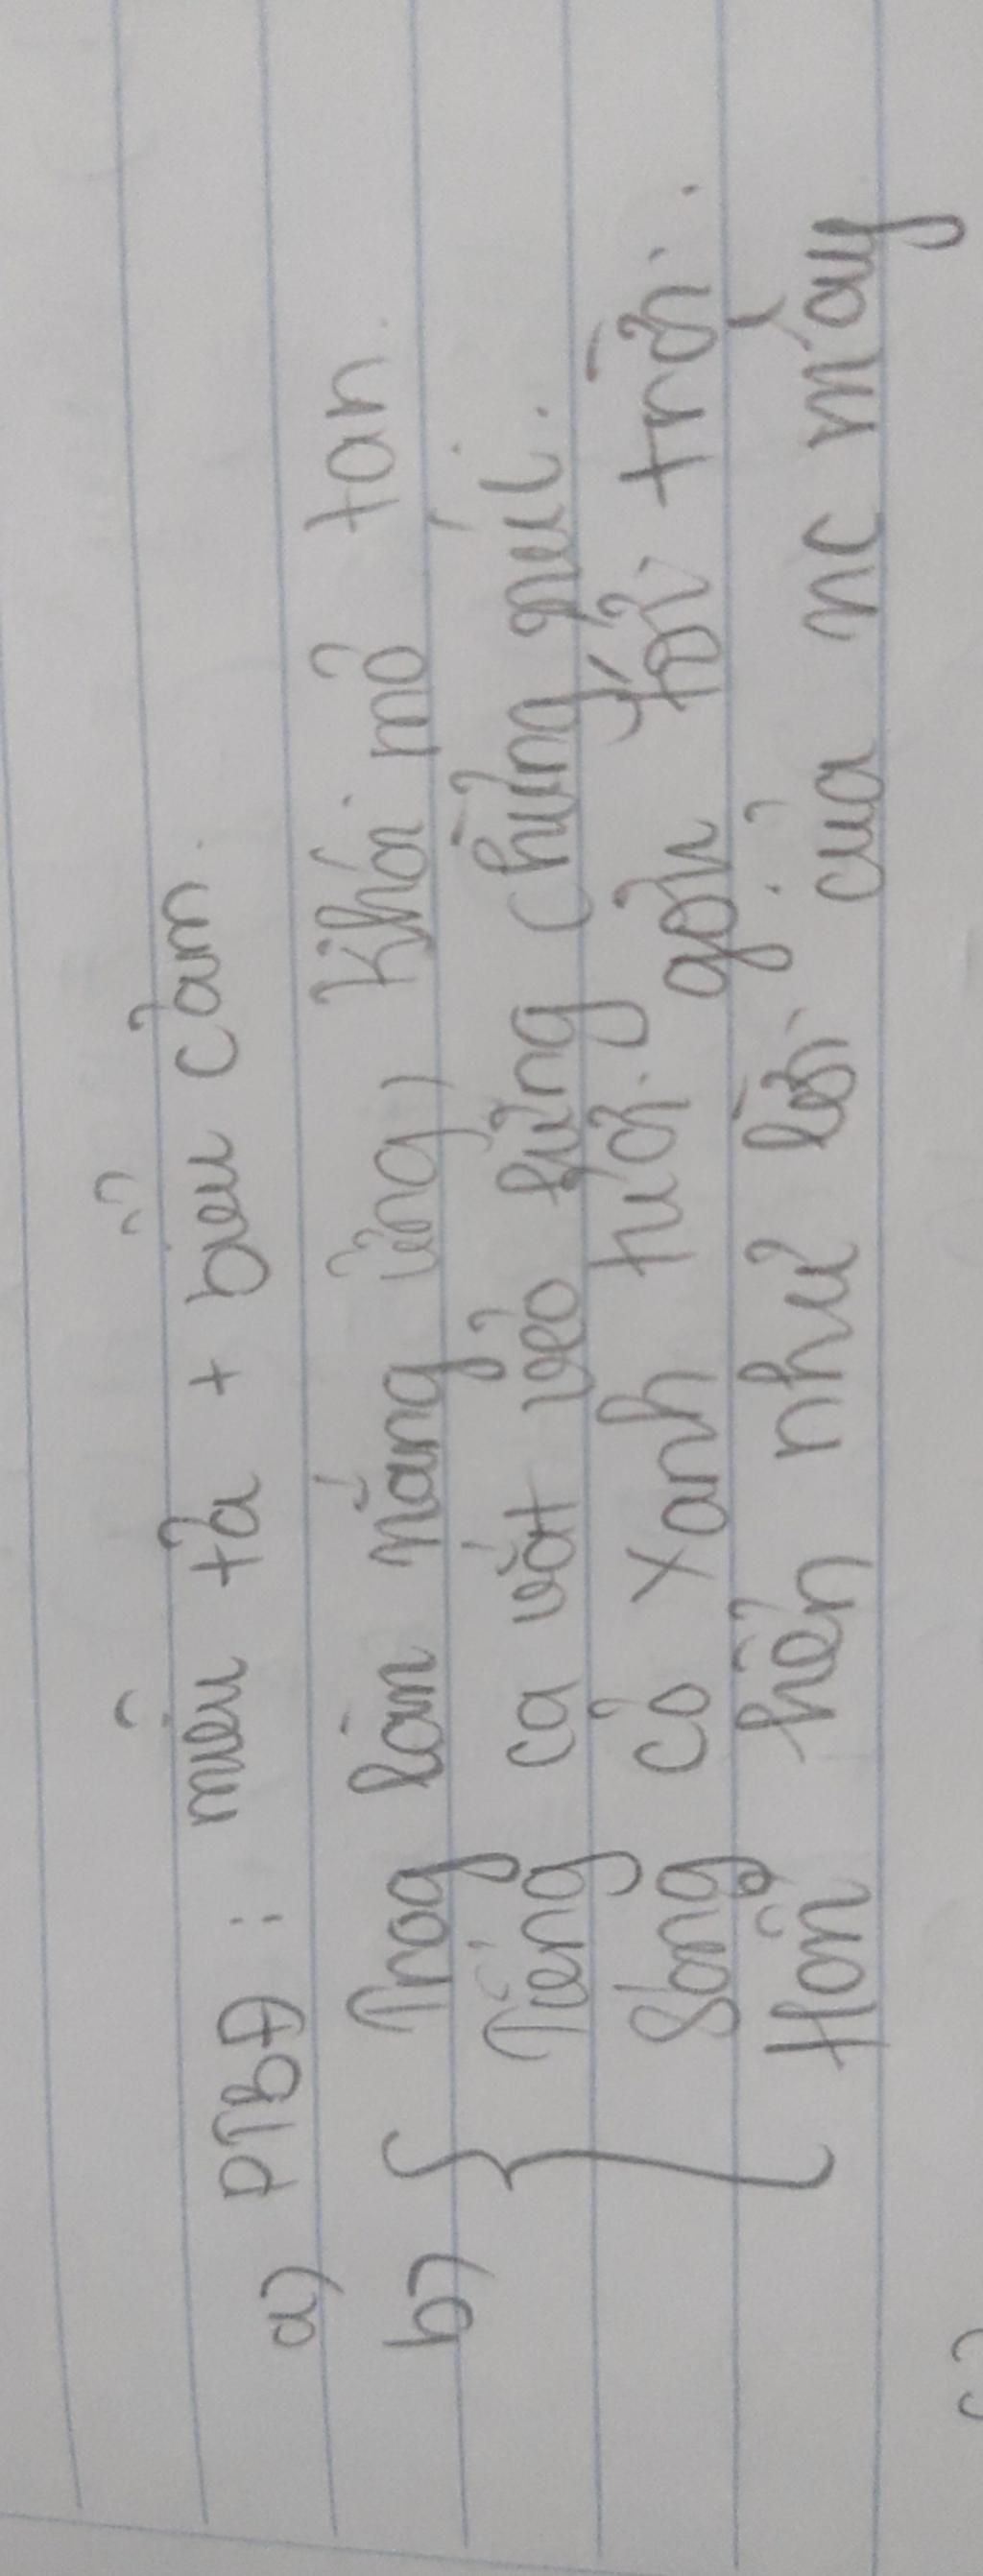 a) PTBĐ : miêu tả + biểu cảm.
b) { Trog làn nắng ửng, Khói mơ tan.
Tiếng ca vắt vẻo lưng chừng núi.
Sóng cỏ xanh tươi gợn tới trời.
Hổn hển như lời của nc mây
c)